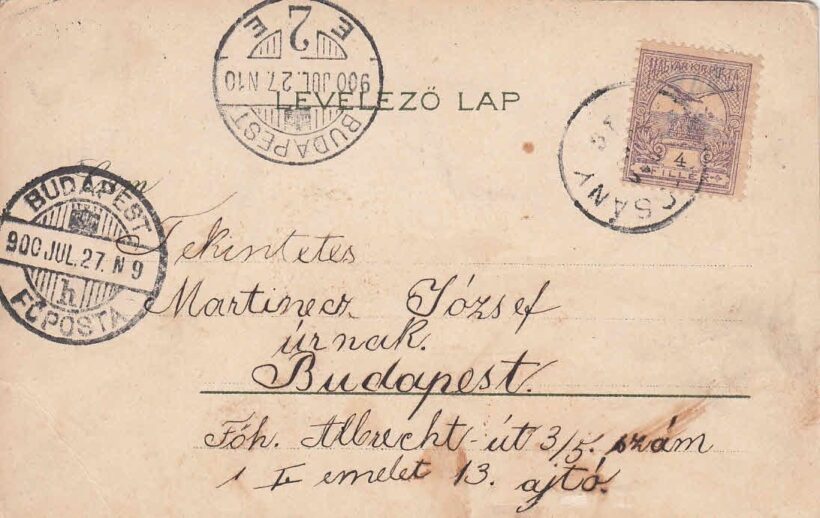 E 2 E
900 JUL. 27. N10
BUDAPEST
LEVELEZŐ LAP
MAGYAR KIR. POSTA
4
FILLÉR
CSÁNY
BUDAPEST
900 JUL. 27. N 9
h
FŐPOSTA
Tekintetes
Martinecz József
úrnak.
Budapest.
Fóh. Albrecht-út 3/5. szám
I emelet 13. ajtó.